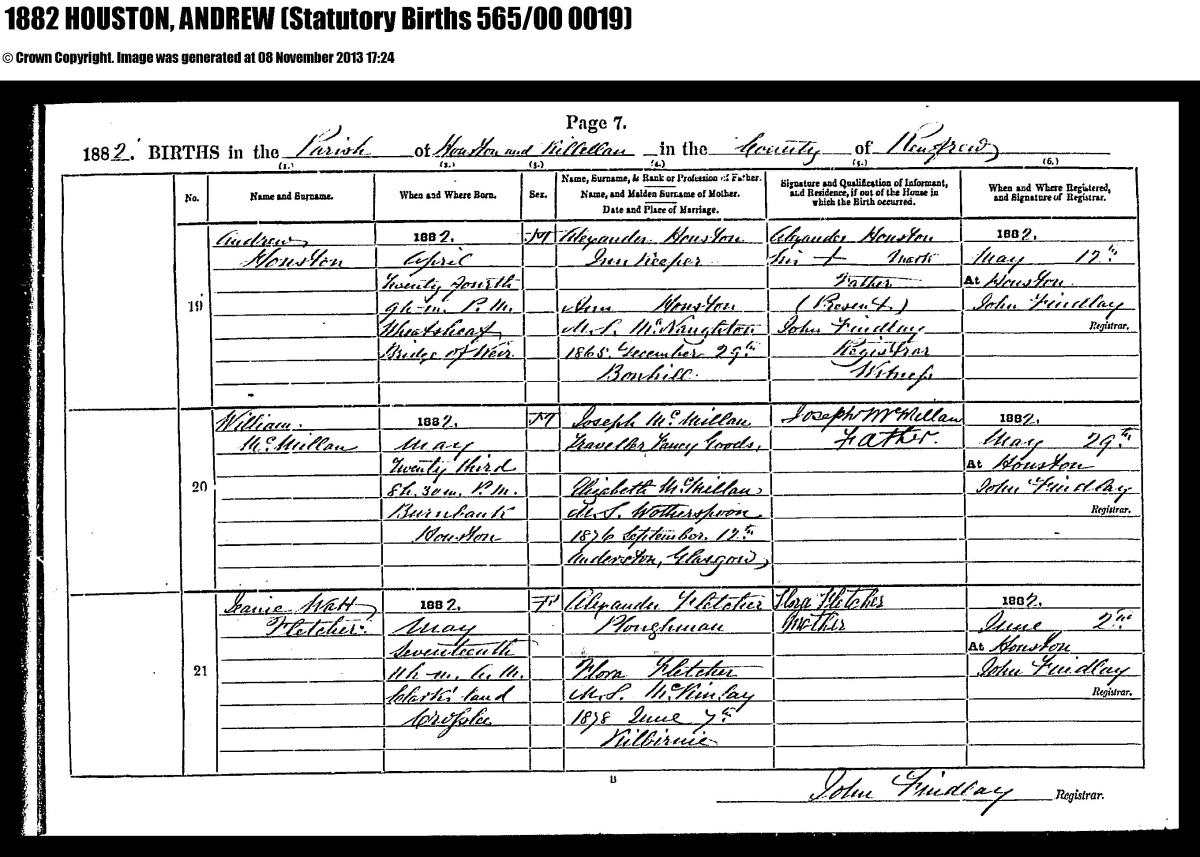 1882 HOUSTON, ANDREW (Statutory Births 565/00 0019)
© Crown Copyright. Image was generated at 08 November 2013 17:24
Page 7.
1882. BIRTHS in the Parish of Houston and Killellan in the County of Renfrew
(1.) (2.) (3.) (4.) (5.) (6.)
No.
Name and Surname.
When and Where Born.
Sex.
Name, Surname, & Rank or Profession of Father.
Name, and Maiden Surname of Mother.
Date and Place of Marriage.
Signature and Qualification of Informant,
and Residence, if out of the House in
which the Birth occurred.
When and Where Registered,
and Signature of Registrar.
19
Andrew
Houston
1882.
April
Twenty fourth
9h. m. P.M.
Wheatsheaf
Bridge of Weir
M
Alexander Houston
Inn Keeper
Ann Houston
M.S. McNaughton
1865. December 29th
Bonhill.
Alexander Houston
his + mark
Father
(Present)
John Findlay
Registrar
Witness
1882.
May 12th
At Houston
John Findlay
Registrar.
20
William
McMillan
1882.
May
Twenty third
8h. 30m. P.M.
Burnbank
Houston
M
Joseph McMillan
Traveller Fancy Goods,
Elizabeth McMillan
M.S. Wotherspoon
1876 September. 12th
Anderston, Glasgow
Joseph McMillan
Father.
1882.
May 29th
At Houston
John Findlay
Registrar.
21
Jeanie Watt
Fletcher.
1882.
May
Seventeenth
11h. m. A.M.
Clark's land
Crosslee
F
Alexander Fletcher
Ploughman
Flora Fletcher
M.S. McKinlay
1878 June 7th
Kilbirnie
Flora Fletcher
Mother
1882.
June 2nd
At Houston
John Findlay
Registrar.
B
John Findlay Registrar.